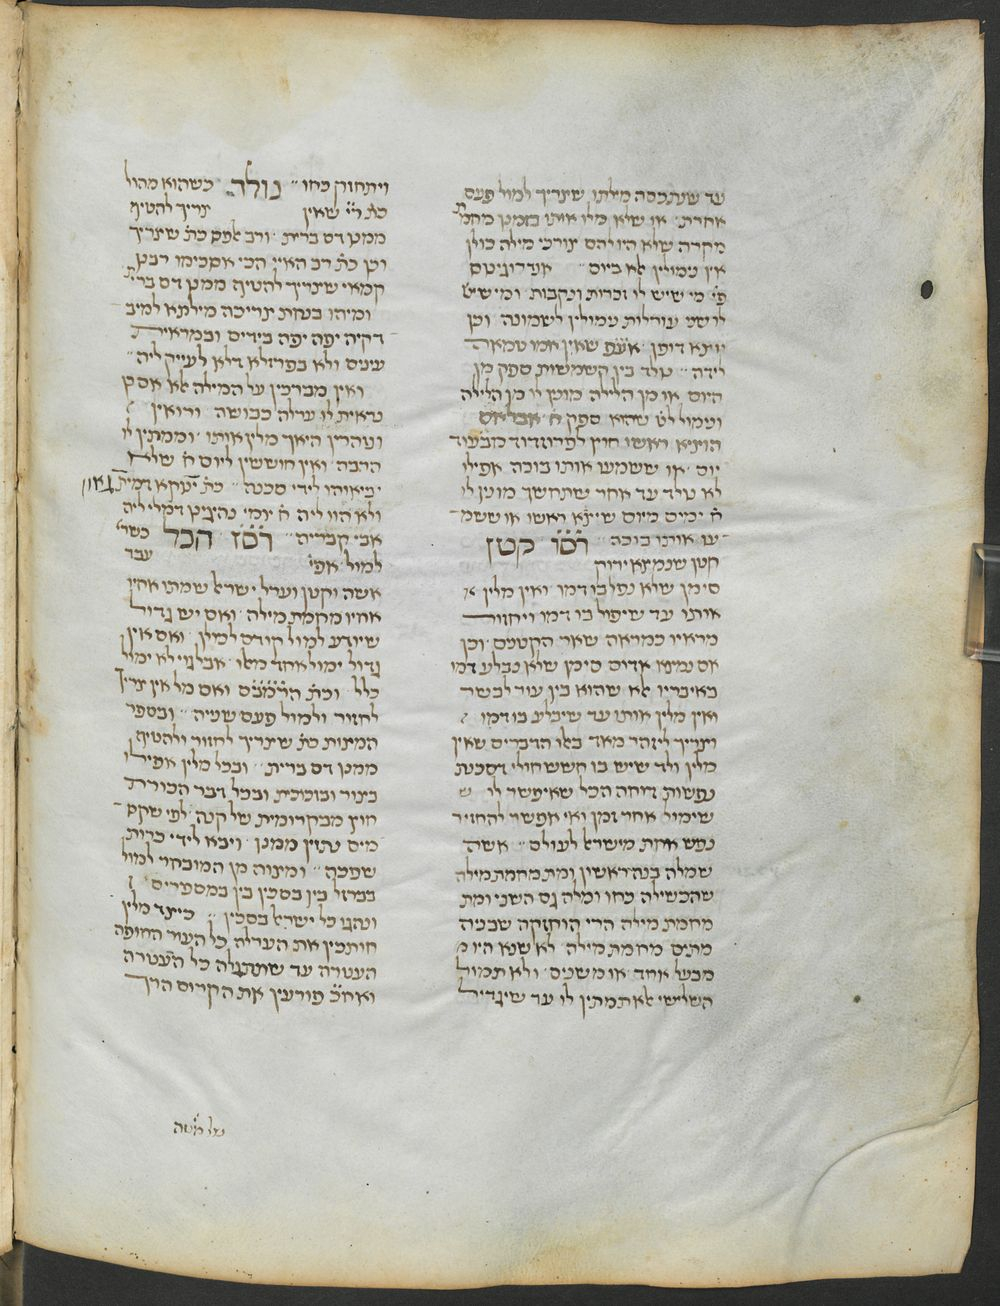 עד שנתכסה מילתו שצריך למול פעם
אחרת׳ או שלא מלו אותו בזמנן מחמת
מקרה שלא היו להם צורכי מילה כולן
אין נמולין אלא ביום״ אנדרוגינוס
פי׳ מי שיש לו זכרות ונקבות׳ ומי שיש
לו שני עורלות נמולין לשמונה׳ וכן
יוצא דופן׳ אע״פ שאין אמו טמאה
לידה״ נולד בין השמשות ספק מן
היום או מן הלילה מונין לו מן הלילה
ונימול לט׳ שהוא ספק ח׳ אבל אם
הוציא ראשו חוץ לפרוזדוד מבעוד
יום׳ או ששמעו אותו בוכה׳ אפילו
לא נולד עד אחר שתחשך מונין לו
ח׳ ימים מיום שיצא ראשו או ששמ־
עו אותו בוכה״ רסו קטן
קטן שנמצא ירוק
סימן שלא נפל בו דמו ואין מלין
אותו עד שיפול בו דמו ויחזור
מראיו כמראה שאר הקטנים׳ וכן
אם נמצא אדום סימן שלא נבלע דמו
באיבריו אלא שהוא בין עור לבשר
ואין מלין אותו עד שיבלע בו דמו
וצריך ליזהר מאד באלו הדברים שאין
מלין ולד שיש בו חשש חולי דסכנת
נפשות דוחה הכל שאיפשר לו
שימול אחר זמן ואי אפשר להחזיר
נפש אחת מישראל לעולם״ אשה
שמלה בנה ראשון ומת מחמת מילה
שהכשילה כחו ומלה גם השני ומת
מחמת מילה הרי הוחזקה שבניה
מתים מחמת מילה׳ לא שנא היו
מבעל אחד או משנים׳ ולא תמול
השלישי אלא תמתין לו עד שיגדיל
ויתחזק כחו״ נולד כשהוא מהול
כת׳ ר״י שאין צריך להטיף
ממנו דם ברית׳ ורב אלפס כת׳ שצריך
וכן כת׳ רב האיי הכי אסכימו רבנן
קמאי שצריך להטיף ממנו דם ברית
ומיהו בנחת וצריכה מילתא למיב
דקיה יפה יפה בידים ובמראית
עינים ולא בפרזלא דלא לעייק ליה״
ואין מברכין על המילה אלא אם כן
נראית לו ערלה כבושה׳ ורואין
ונזהרין היאך מלין אותו׳ וממתין לו
הרבה׳ ואין חוששין ליום ח׳ שלא
יביאוהו לידי סכנה״ כת׳ יעקא דמית גאון
ולא הוו ליה ח׳ יומי נהיגינן דמלי ליה
אבי קבריה״ רסז הכל כשר׳
למול׳ אפי׳ עבד
אשה וקטן וערל ישראל שמתו אחיו
אחיו מחמת מילה׳ ואם יש גדול
שיודע למול קודם למולן׳ ואם אין
גדול ימול אחד מאלו׳ אבל גוי לא ימול
כלל׳ וכת׳ הרמב״ם ואם מל אין צריך
לחזור ולמול פעם שנייה״ ובספר
המצות כת׳ שצריך לחזור ולהטיף
ממנו דם ברית״ ובכל מלין אפילו
בצור ובזכוכית ובכל דבר הכורת
חוץ מבקרומית של קנה לפי שקס־
מים נתזין ממנו׳ ויבא לידי כרות
שפכה״ ומצוה מן המובחר למול
בברזל בין בסכין בין במספרים׳
ונהגו כל ישראל בסכין״ כיצד מלין
חותכין את הערלה כל העור החופה
העטרה עד שתתגלה כל העטרה
ואח״כ פורעין את הקרום הרך
של מטה